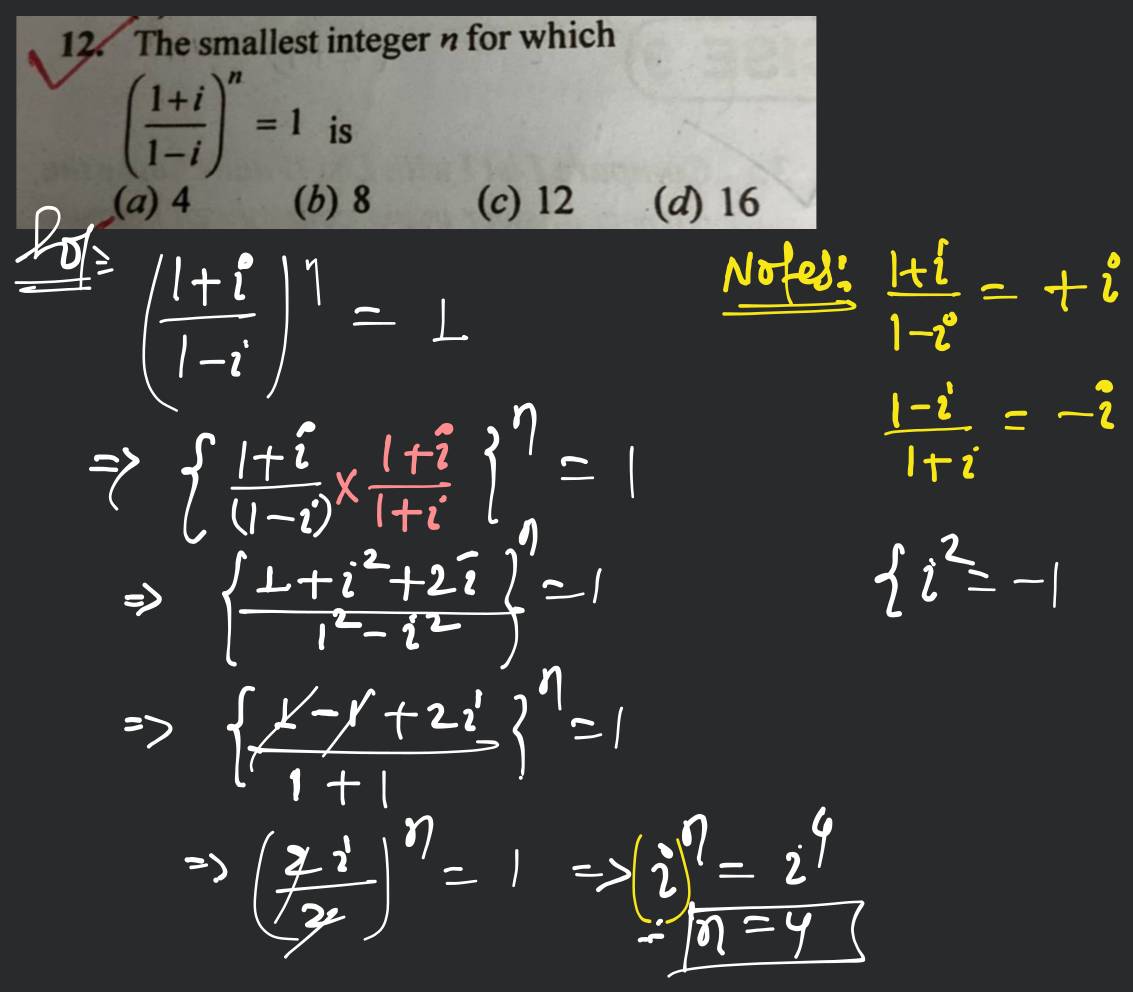 12. The smallest integer n for which
((1+i)/(1-i))^n = 1 is
(a) 4 (b) 8 (c) 12 (d) 16
Sol:
((1+i)/(1-i))^n = 1
⇒ {(1+i)/(1-i) × (1+i)/(1+i)}^n = 1
⇒ {(1+i²+2i)/(1²-i²)}^n = 1
⇒ {(1-1+2i)/(1+1)}^n = 1
⇒ (2i/2)^n = 1 ⇒ (i)^n = i^4
∴ n=4
Notes: (1+i)/(1-i) = +i
(1-i)/(1+i) = -i
{i² = -1